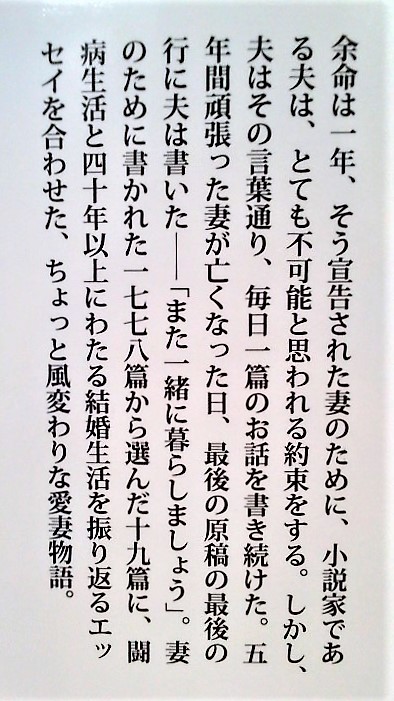 余命は一年、そう宣告された妻のために、小説家であ
る夫は、とても不可能と思われる約束をする。しかし、
夫はその言葉通り、毎日一篇のお話を書き続けた。五
年間頑張った妻が亡くなった日、最後の原稿の最後の
行に夫は書いた――「また一緒に暮らしましょう」。妻
のために書かれた一七七八篇から選んだ十九篇に、闘
病生活と四十年以上にわたる結婚生活を振り返るエッ
セイを合わせた、ちょっと風変わりな愛妻物語。